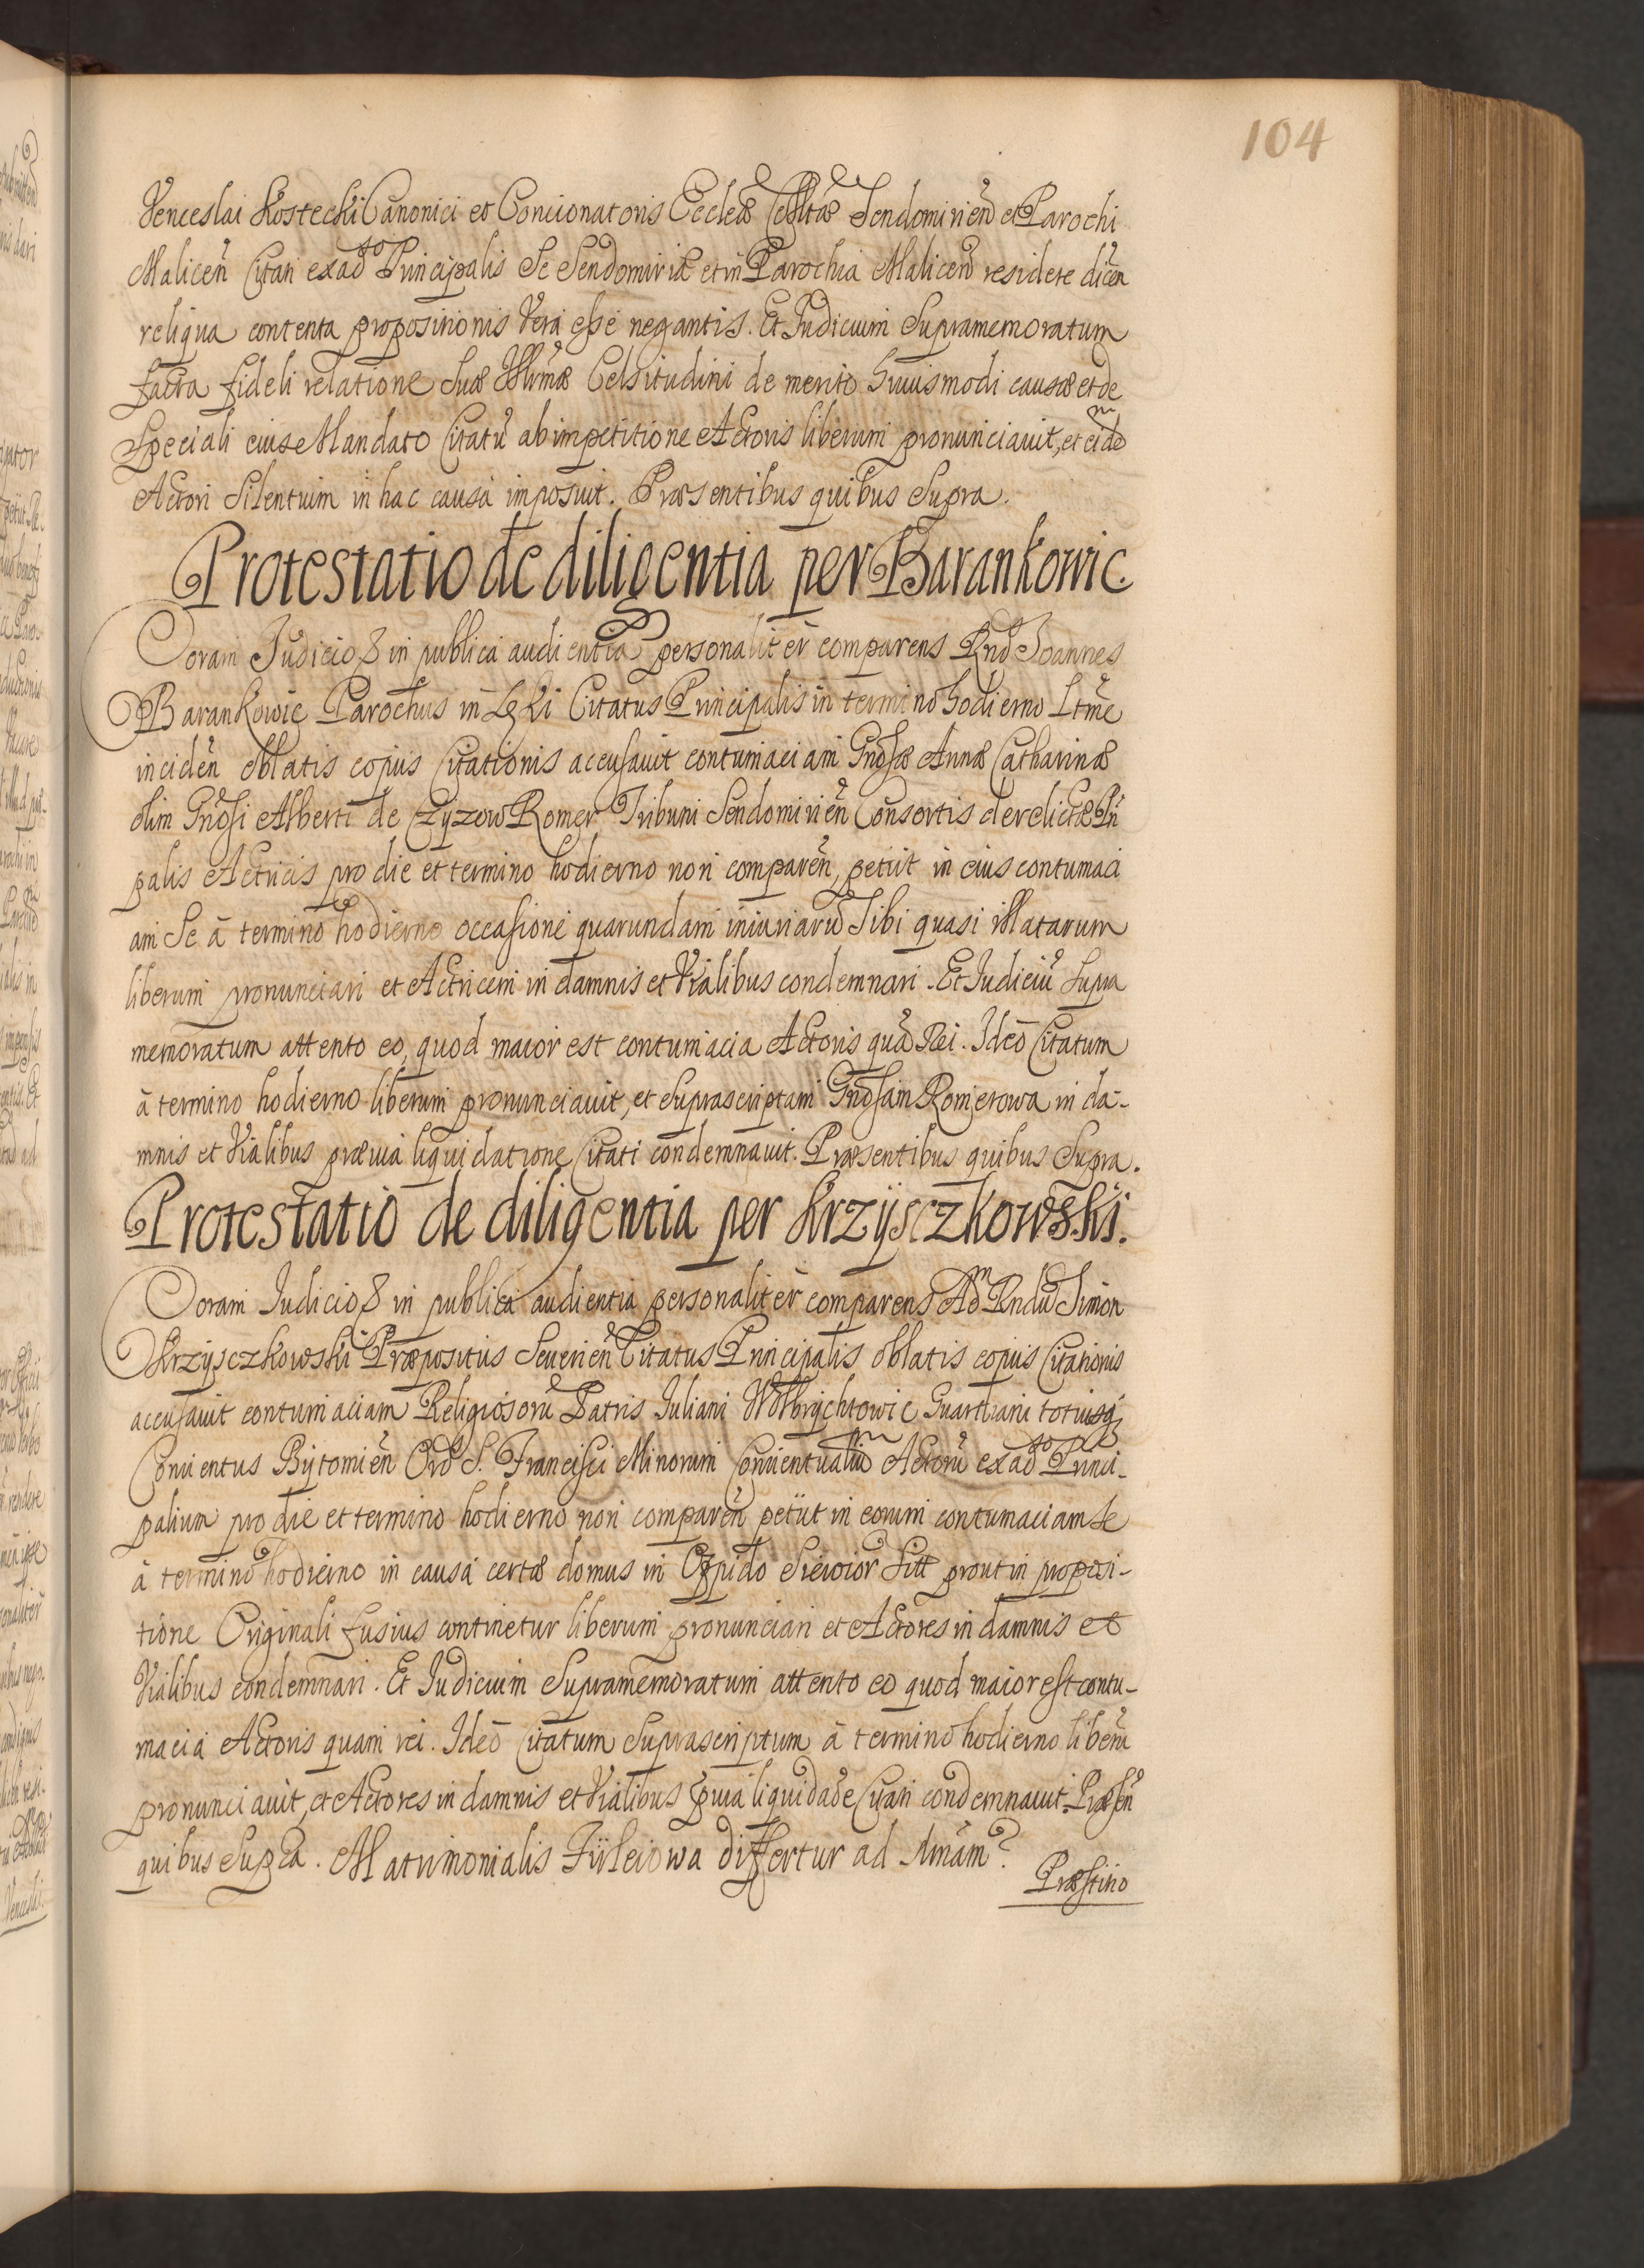 104
Venceslai Kostecki Canonici et Concionatoris Eccleæ Collttæ Sendomirien̄ et Parochi
Malicen̄ Citati ex ad°so Principalis Se Sendomiriæ et in Parochia Malicen̄ residere dicen̄
reliqua contenta propositionis Vera esse negantis. Et Iudicium Supramemoratum
facta fideli relatione Suæ Illrmæ Celsitudini de merito huiusmodi causæ et de
Speciali eius Mandato Citatū ab impetitione Actoris liberum pronunciauit, et eidem
Actori Silentium in hac causa imposuit. Præsentibus quibus Supra.
Protestatio de diligentia per Barankowic
Coram Iudicio & in publica audientia personaliter comparens Rnd9 Ioannes
Barankowic Parochus in Łęki Citatus Principalis in termino hodierno Ltme
inciden̄ oblatis copijs Citationis accusauit contumaciam Gnosæ Annæ Catharinæ
olim Gnosi Alberti de Czyzow Romer Tribuni Sendomirien̄ Consortis derelictæ Prin
palis Actricis pro die et termino hodierno non comparen̄, petiit in eius contumaci
am Se à termino hodierno occasione quarundam iniuriarū Sibi quasi illatarum
liberum pronunciari et Actricem in damnis et Vialibus condemnari. Et Iudiciū Supra
memoratum attento eo, quod maior est contumacia Actoris quā Rei. Ideò Citatum
à termino hodierno liberum pronunciauit, et Suprascriptam Gnosam Romerowa in da-
mnis et Vialibus præuia liquidatione Citati condemnauit. Præsentibus quibus Supra.
Protestatio de diligentia per Krzÿsczkowski.
Coram Iudicio & in publica audientia personaliter comparens Adm Rndū Simon
Krzysczkowski Præpositus Seuerien̄ Citatus Principalis oblatis copijs Citationis
accusauit contumaciam Religiosorū Patris Iuliani Wolbrychtowic Guardiani totiusq3
Conuentus Bytomien̄ Ord S. Francisci Minorum Conuentualium Actorū ex ad°so Princi-
palium pro die et termino hodierno non comparen̄ petiit in eorum contumaciam Se
à termino hodierno in causa certæ domus in Oppido Siewior Sitt prout in proposi-
tione Originali fusius continetur liberum pronunciari et Actores in damnis et
Vialibus condemnari. Et Iudicium Supramemoratum attento eo quod maior est contu-
macia Actoris quam rei. Ideò Citatum Suprascriptum à termino hodierno liberū
pronunciauit, et Actores in damnis et Vialibus p̄uia liquidaōe Citati condemnauit. Præsen̄
quibus Supra. Matrimonialis differtur ad
Præstino